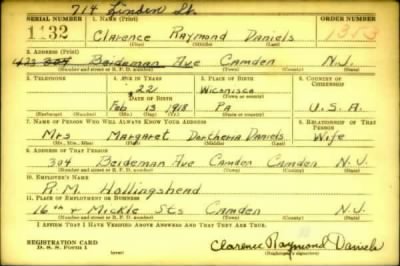 714 Linden St.
SERIAL NUMBER 1. NAME (Print) ORDER NUMBER
1132 Clarence Raymond Daniels 1353
(First) (Middle) (Last)
2. ADDRESS (Print)
Beideman Ave Camden N.J.
(Number and street or R. F. D. number) (Town) (County) (State)
3. TELEPHONE 4. AGE IN YEARS 5. PLACE OF BIRTH 6. COUNTRY OF CITIZENSHIP
22 Wiconisco
DATE OF BIRTH (Town or county)
Feb 13 1918 Pa U.S.A.
(Mo.) (Day) (Yr.) (State or country)
7. NAME OF PERSON WHO WILL ALWAYS KNOW YOUR ADDRESS 8. RELATIONSHIP OF THAT PERSON
Mrs Margaret Dortheria Daniels Wife
(Mr., Mrs., Miss) (First) (Middle) (Last)
9. ADDRESS OF THAT PERSON
304 Beideman Ave Camden Camden N.J.
(Number and street or R. F. D. number) (Town) (County) (State)
10. EMPLOYER'S NAME
R. M. Hollingshead
11. PLACE OF EMPLOYMENT OR BUSINESS
16th & Mickle Sts Camden N.J.
(Number and street or R. F. D. number) (Town) (County) (State)
I AFFIRM THAT I HAVE VERIFIED ABOVE ANSWERS AND THAT THEY ARE TRUE.
REGISTRATION CARD
D. S. S. Form 1 Clarence Raymond Daniels
(Registrant's signature)